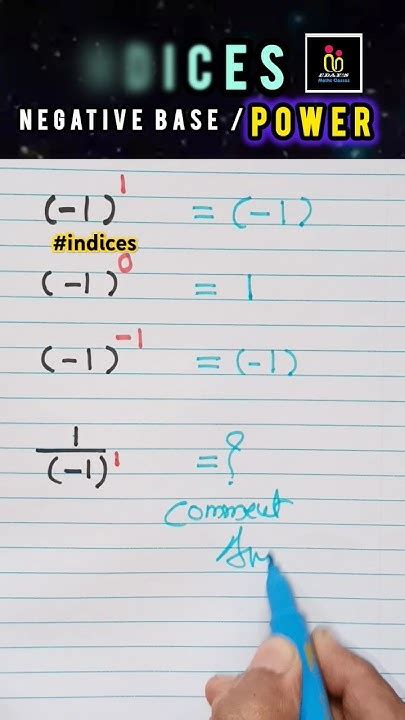 INDICES
EDAY'S
Maths Classes
NEGATIVE BASE / POWER
(-1)¹ = (-1)
#indices
(-1)⁰ = 1
(-1)⁻¹ = (-1)
1/(-1)¹ = ?
Comment